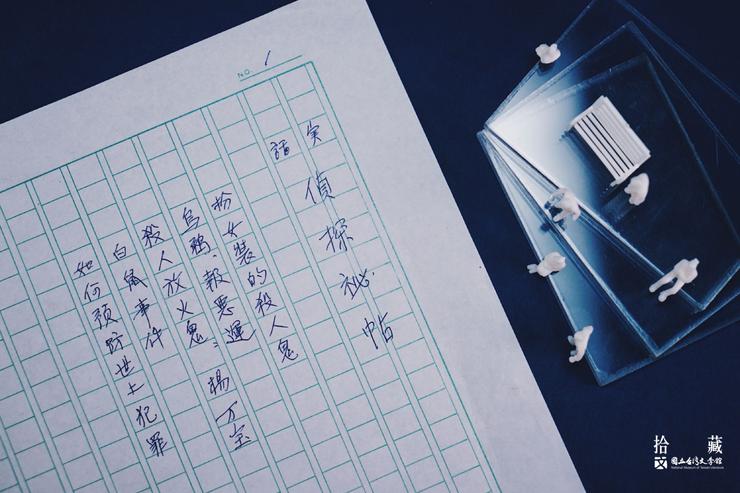 NO. 1
実話 偵探祕帖
扮女裝的殺人鬼
烏鴉、報悪運:楊万宝
殺人放火鬼
白鼠事件
如何預防世上犯罪
拾藏
国立台湾文学館
National Museum of Taiwan Literature